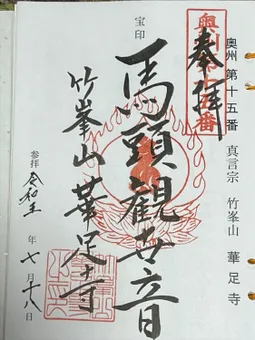 奥州 第十五番 真言宗 竹峯山 華足寺
奥州十五番
奉拝
宝印
馬頭観世音
竹峯山 華足寺
参拝 令和 年 七月十八日